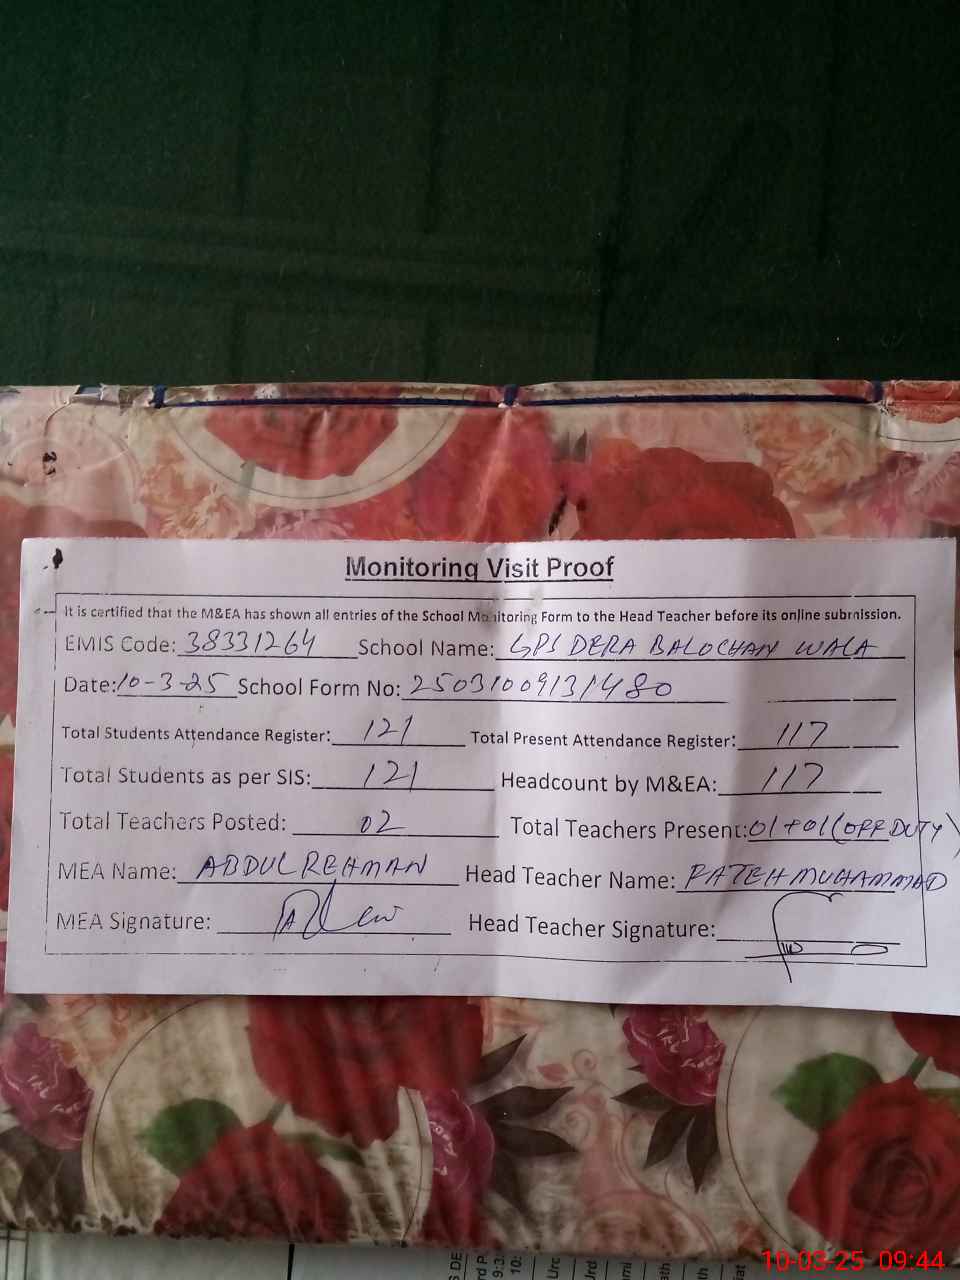 Monitoring Visit Proof
It is certified that the M&EA has shown all entries of the School Monitoring Form to the Head Teacher before its online submission.
EMIS Code: 38331264 School Name: GPS DERA BALOCHAN WALA
Date: 10-3-25 School Form No: 25031009131480
Total Students Attendance Register: 121 Total Present Attendance Register: 117
Total Students as per SIS: 121 Headcount by M&EA: 117
Total Teachers Posted: 02 Total Teachers Present: 01+01(OFF DUTY)
MEA Name: ABDUL REHMAN Head Teacher Name: FATEH MUHAMMAD
MEA Signature: Head Teacher Signature:
10-03-25 09:44